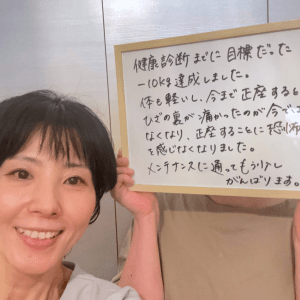 健康診断までに目標だった
－10kg達成しました。
体も軽いし、今まで正座すると
ひざの裏が痛かったのが今で
なくなり、正座することに
を感じなくなりました。
メンテナンスに通ってもう少し
がんばります。